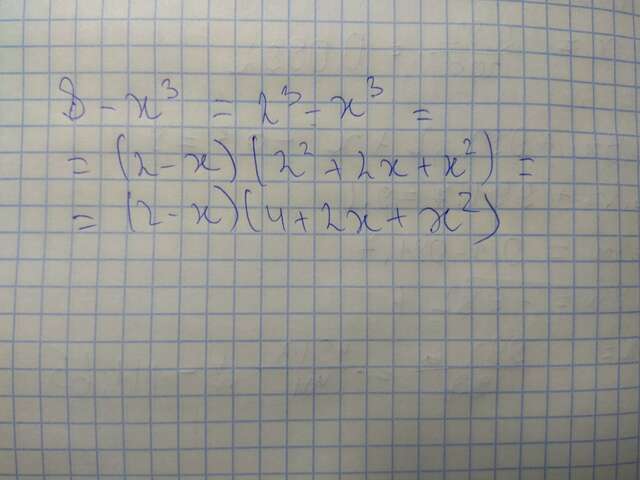 8 - x³ = 2³ - x³ =
= (2 - x)(2² + 2x + x²) =
= (2 - x)(4 + 2x + x²)